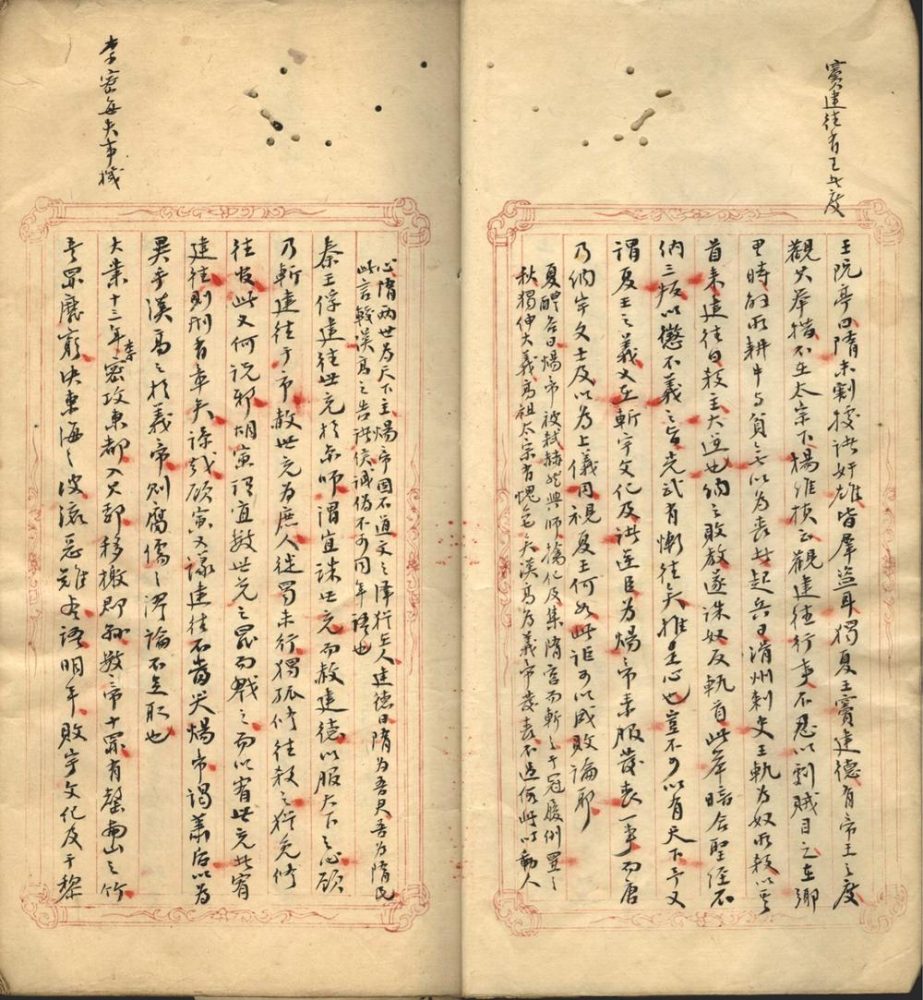 竇建德有王者度
王阮亭曰隋末割據諸奸雄皆羣盜耳獨夏王竇建德有帝王之度
觀其舉措不在太宗下楊維楨云觀建德行事不忍以劇賊目之在鄉
里時解所耕牛與貧者以為喪其起兵日滑州刺史王軌為奴所殺以其
首來建德曰殺主大逆也納之敗教遂誅奴反軌首此舉暗合聖經不
納三叛以懲不義之旨光武有慚德矣推是心也豈不可以有天下乎又
謂夏王之義又在斬宇文化及誅逆臣為煬帝素服發喪一事而唐
乃納宇文士及以為上儀同視夏王何如此詎可以成敗論耶
夏醴谷曰煬帝被弒赫然興師擒化及集隋官而斬之千冠履倒置之
秋獨伸大義高祖太宗有愧色矣漢高為義帝發喪不過假此以動人
心隋兩世為天下主煬帝固不道文之澤猶在人建德曰隋為吾君吾為隋民
此言較漢高之告諸侯誠偽不可同年語也
秦王俘建德世充於京師謂宜誅世充而赦建德以服天下之心顧
乃斬建德于市赦世充為庶人徙蜀未行獨孤修德殺之猶免修
德官此又何說邪胡寅謂宜數世充之罪而戮之而以宥世充者宥
建德則刑有章矣諒哉顧寅又議建德不當哭煬帝謁蕭后以為
異乎漢高之於義帝則腐儒之謬論不足取也
李密每失事機
大業十三年李密攻東都入其郛移檄郡縣數帝十罪有罄南山之竹
書罪靡窮決東海之波流惡難盡語明年敗宇文化及于黎